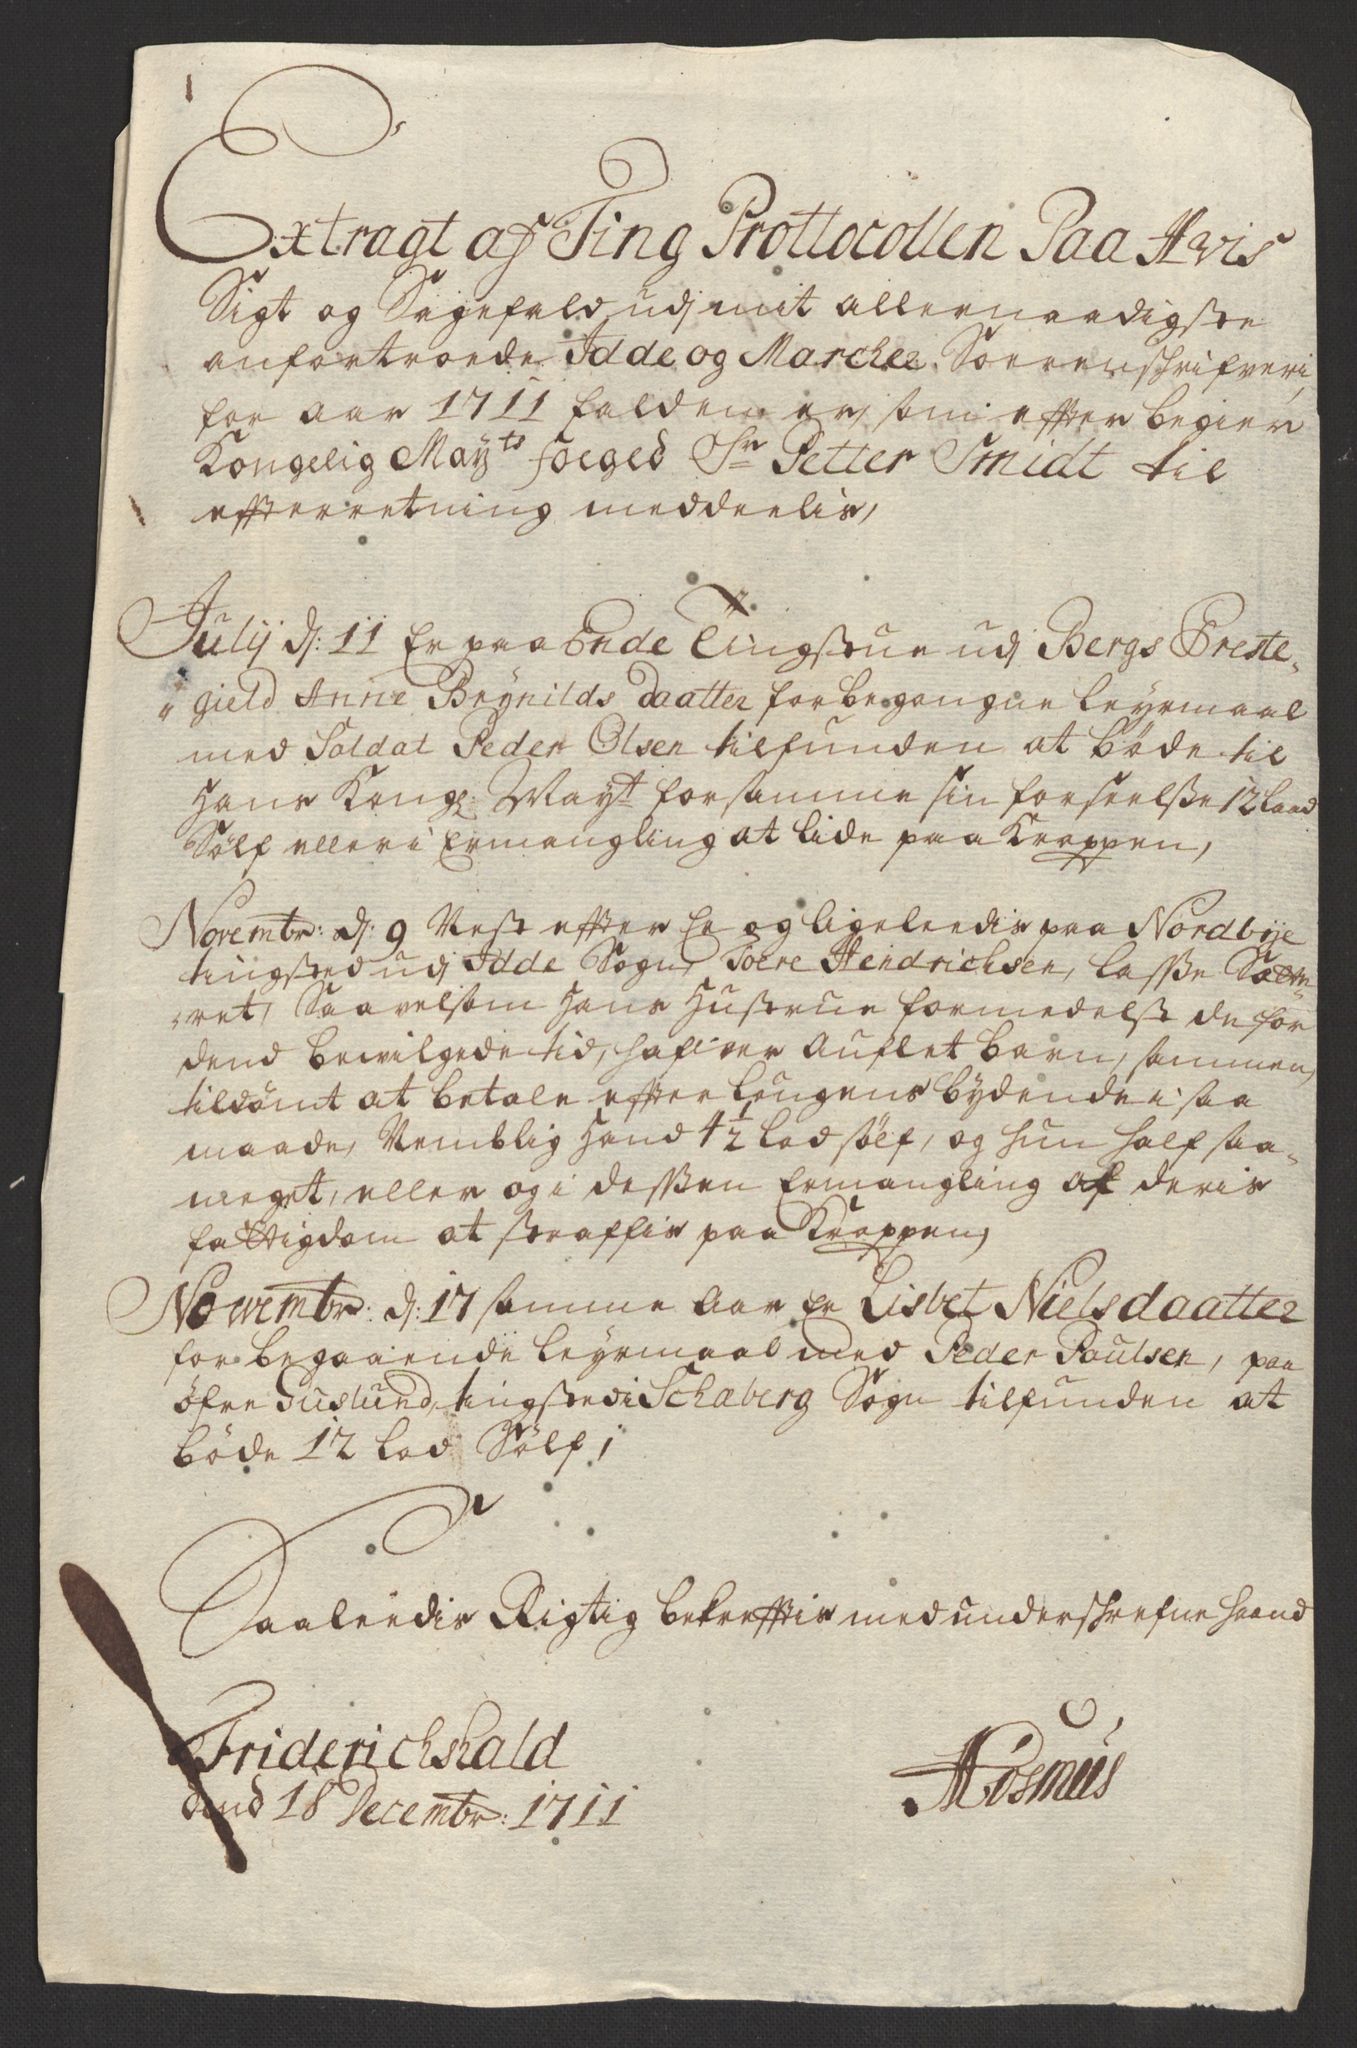 Extragt af Ting Prottocollen Paa Hvis
Sigt og Sagefald udj mit allernaadigste
anfortroede Idde og Marcher Sorrenschrifveri
for aar 1711 falden er, som efter begier
Kongelig Mayts foeged Sr Petter Smidt til
efterretning meddeelis,
Julij d: 11 Er paa Ende Tingstue udj Bergs Preste-
gield Anne Brÿnilds daatter for begangne leyrmaal
med Soldat Peder Olsen tilfunden at bøde til
Hans Kongl Mayt for samme sin forseelse 12 laad
Sølf eller i Ermangling at lide paa Kroppen,
Novembr: d: 9 Nest efter Er og ligeleedis paa Nordbÿe
tingsted udj Idde Sogn, Toere Hendrichsen, lasse
ret, Saavelsom Hans Hustrue formedelst de for
dend bewilgede tid, hafver Auflet barn, sammen
tildømt at betale efter lougens bÿdende i saa
maade, Nemblig Hand 4½ lod sølf, og hun half saa-
meget, eller og i dessen Ermangling af deris
fattigdom at straffis paa Kroppen,
Nowembr: d: 17 samme aar Er Lisbet Nielsdaatter
for begaaende leyrmaal med Peder Paulsen, paa
øfre tingsted i Schaberg Sogn tilfunden at
bøde 12 lod Sølf,
Saaleedis Rigtig bekreftis med underschrefne haand
Friderichshald
dend 18 Decembr: 1711
ARosmus